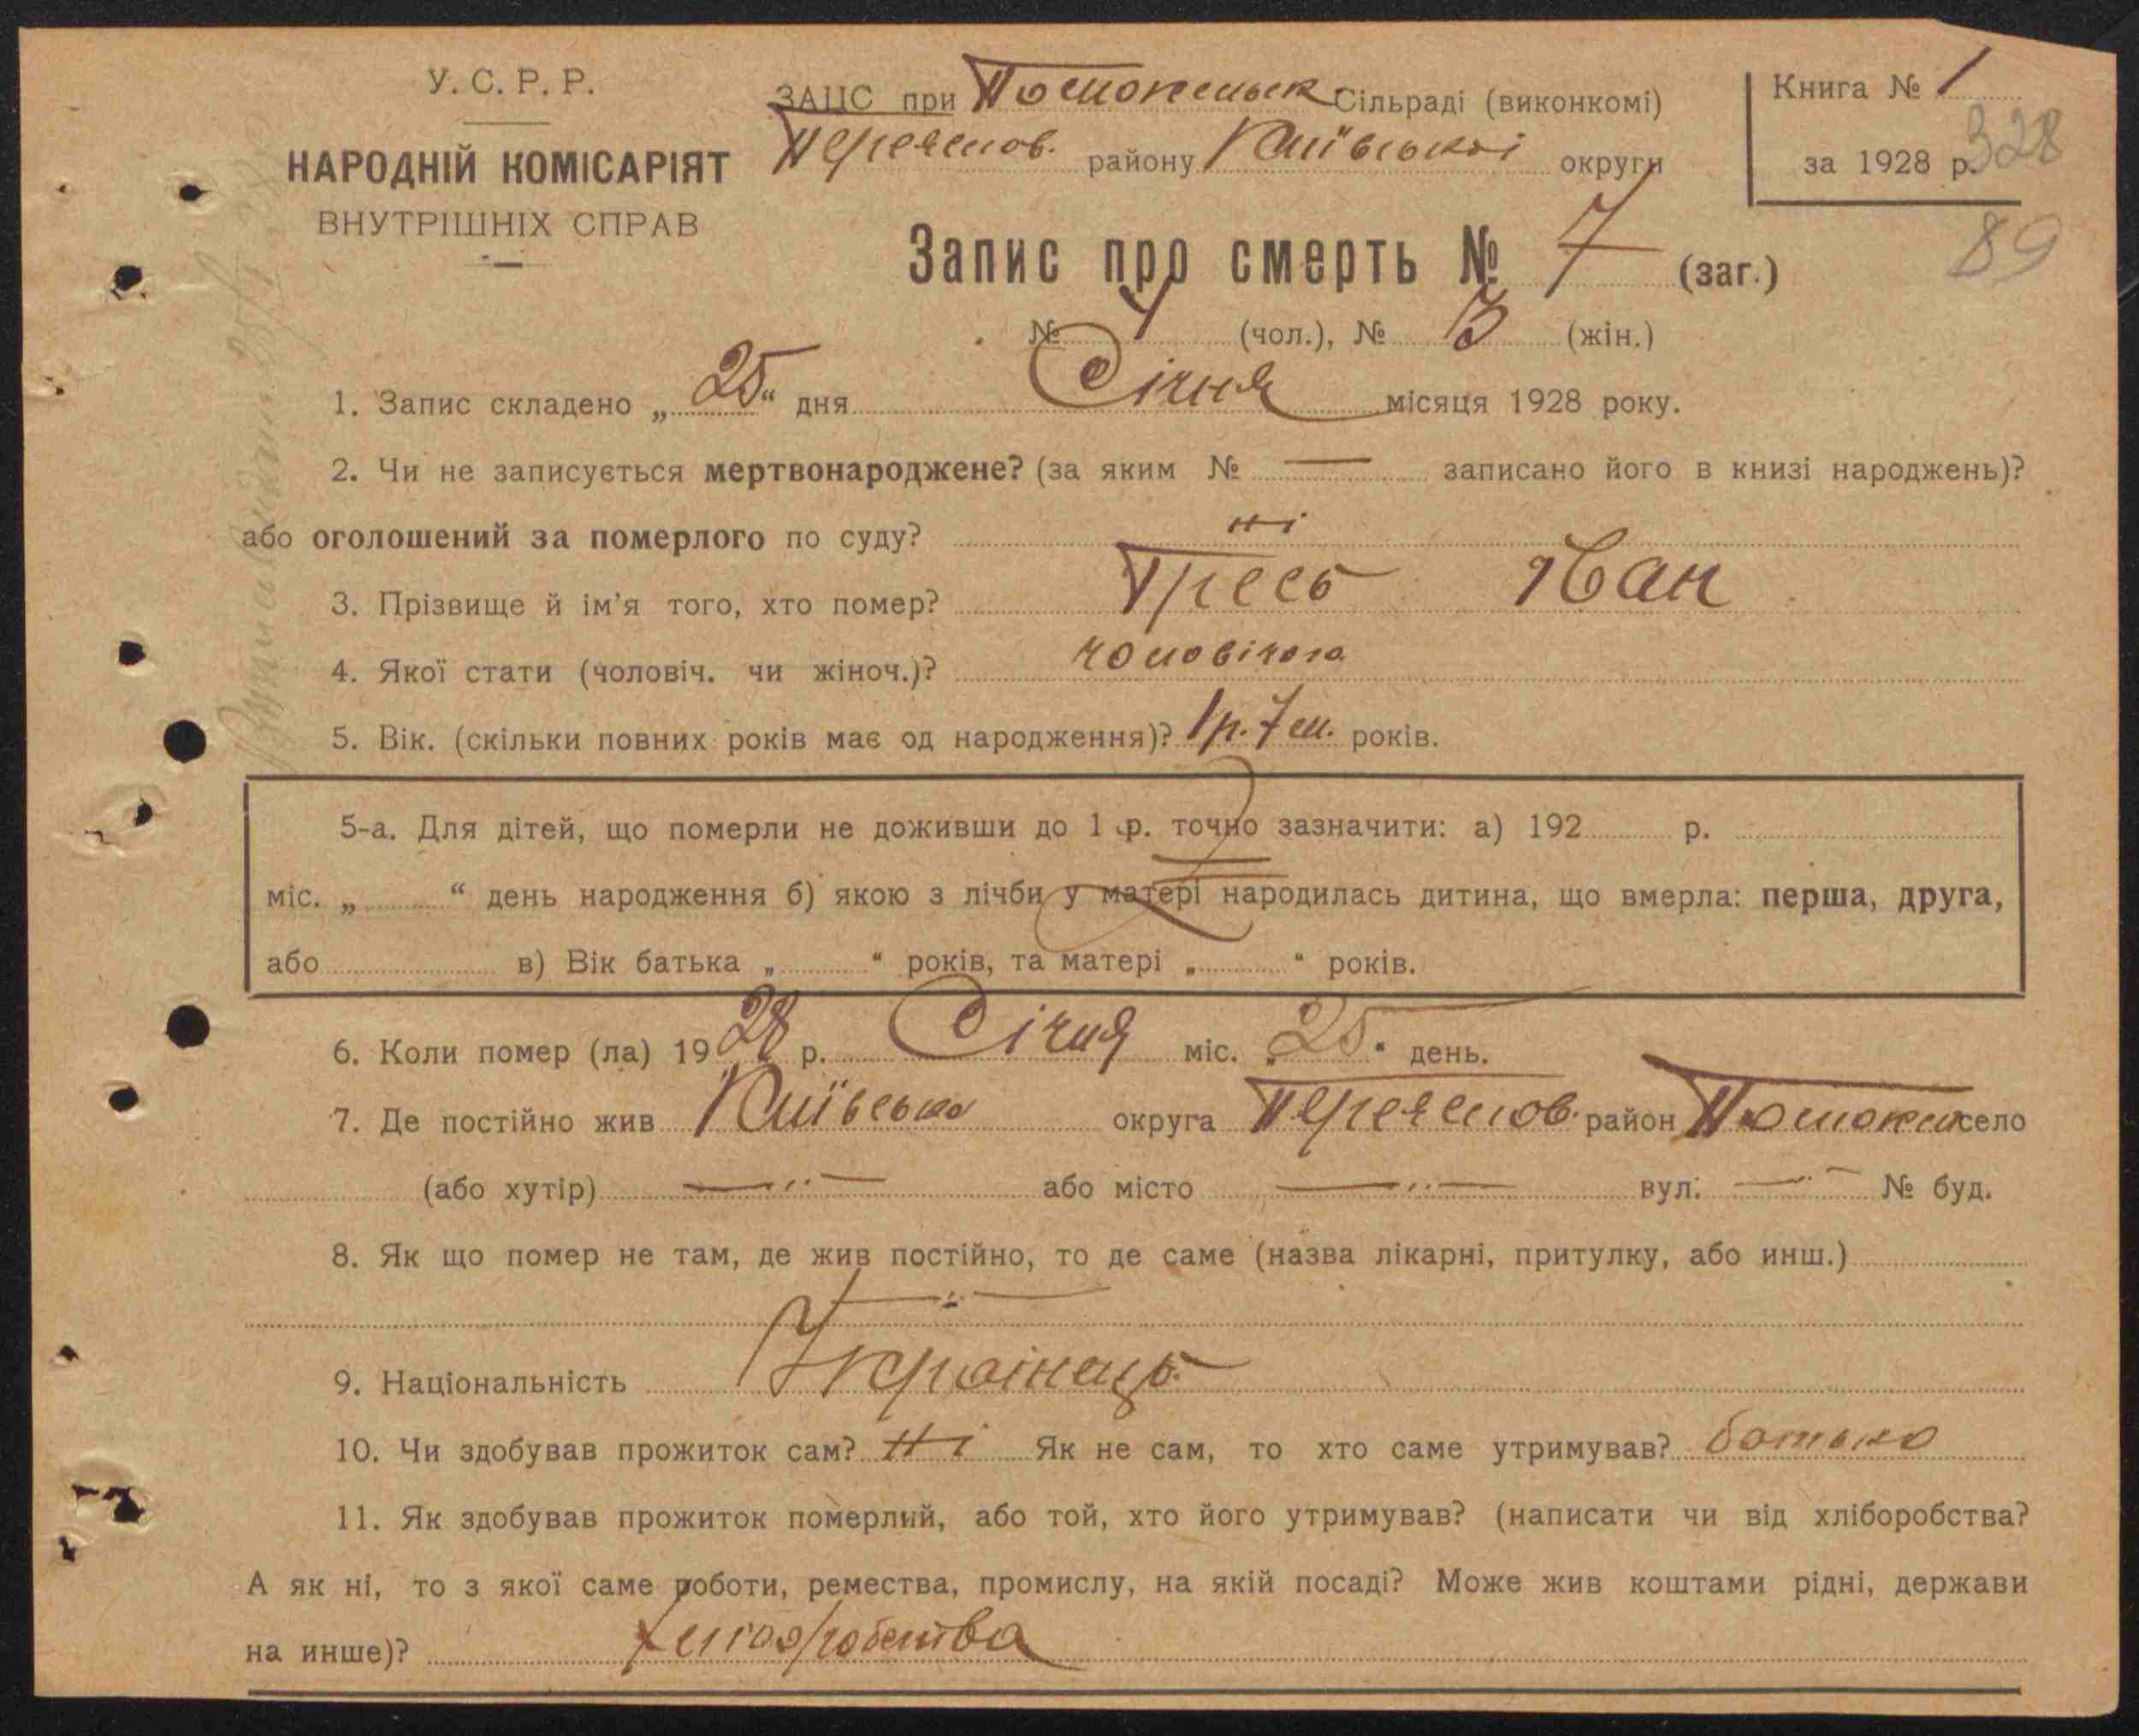 У. С. Р. Р.
НАРОДНІЙ КОМІСАРІЯТ
ВНУТРІШНІХ СПРАВ
ЗАЦС при Помокельск Сільраді (виконкомі)
Переяслов. району Київської округи
Книга № 1
за 1928 р.
328
89
Запис про смерть № 7 (заг.)
№ 4 (чол.), № 3 (жін.)
1. Запис складено „25“ дня Січня місяця 1928 року.
2. Чи не записується мертвонароджене? (за яким № — записано його в книзі народжень)?
або оголошений за померлого по суду? ні
3. Прізвище й ім'я того, хто помер? Гресь Іван
4. Якої стати (чоловіч. чи жіноч.)? чоловічого
5. Вік. (скільки повних років має од народження)? 1 р. 7 м. років.
5-а. Для дітей, що померли не доживши до 1 р. точно зазначити: а) 192 р.
міс. „ “ день народження б) якою з лічби у матері народилась дитина, що вмерла: перша, друга,
або в) Вік батька „ “ років, та матері „ “ років.
6. Коли помер (ла) 1928 р. Січня міс. „25“ день.
7. Де постійно жив Київсько округа Переяслов. район село
(або хутір) —„— або місто —„— вул. —„— № буд.
8. Як що помер не там, де жив постійно, то де саме (назва лікарні, притулку, або инш.)
—„—
9. Національність Українець
10. Чи здобував прожиток сам? Ні Як не сам, то хто саме утримував? батько
11. Як здобував прожиток померлий, або той, хто його утримував? (написати чи від хліборобства?
А як ні, то з якої саме роботи, ремества, промислу, на якій посаді? Може жив коштами рідні, держави
на инше)? хліборобства